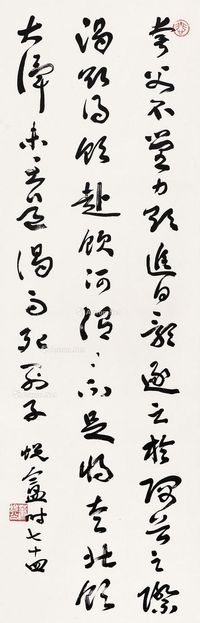 夸父不量力欲追日影逐之於隅谷之際
渴欲得飲赴飲河渭〻不足將走北飲
大澤未至道渴而死 列子 蜕盦时七十四